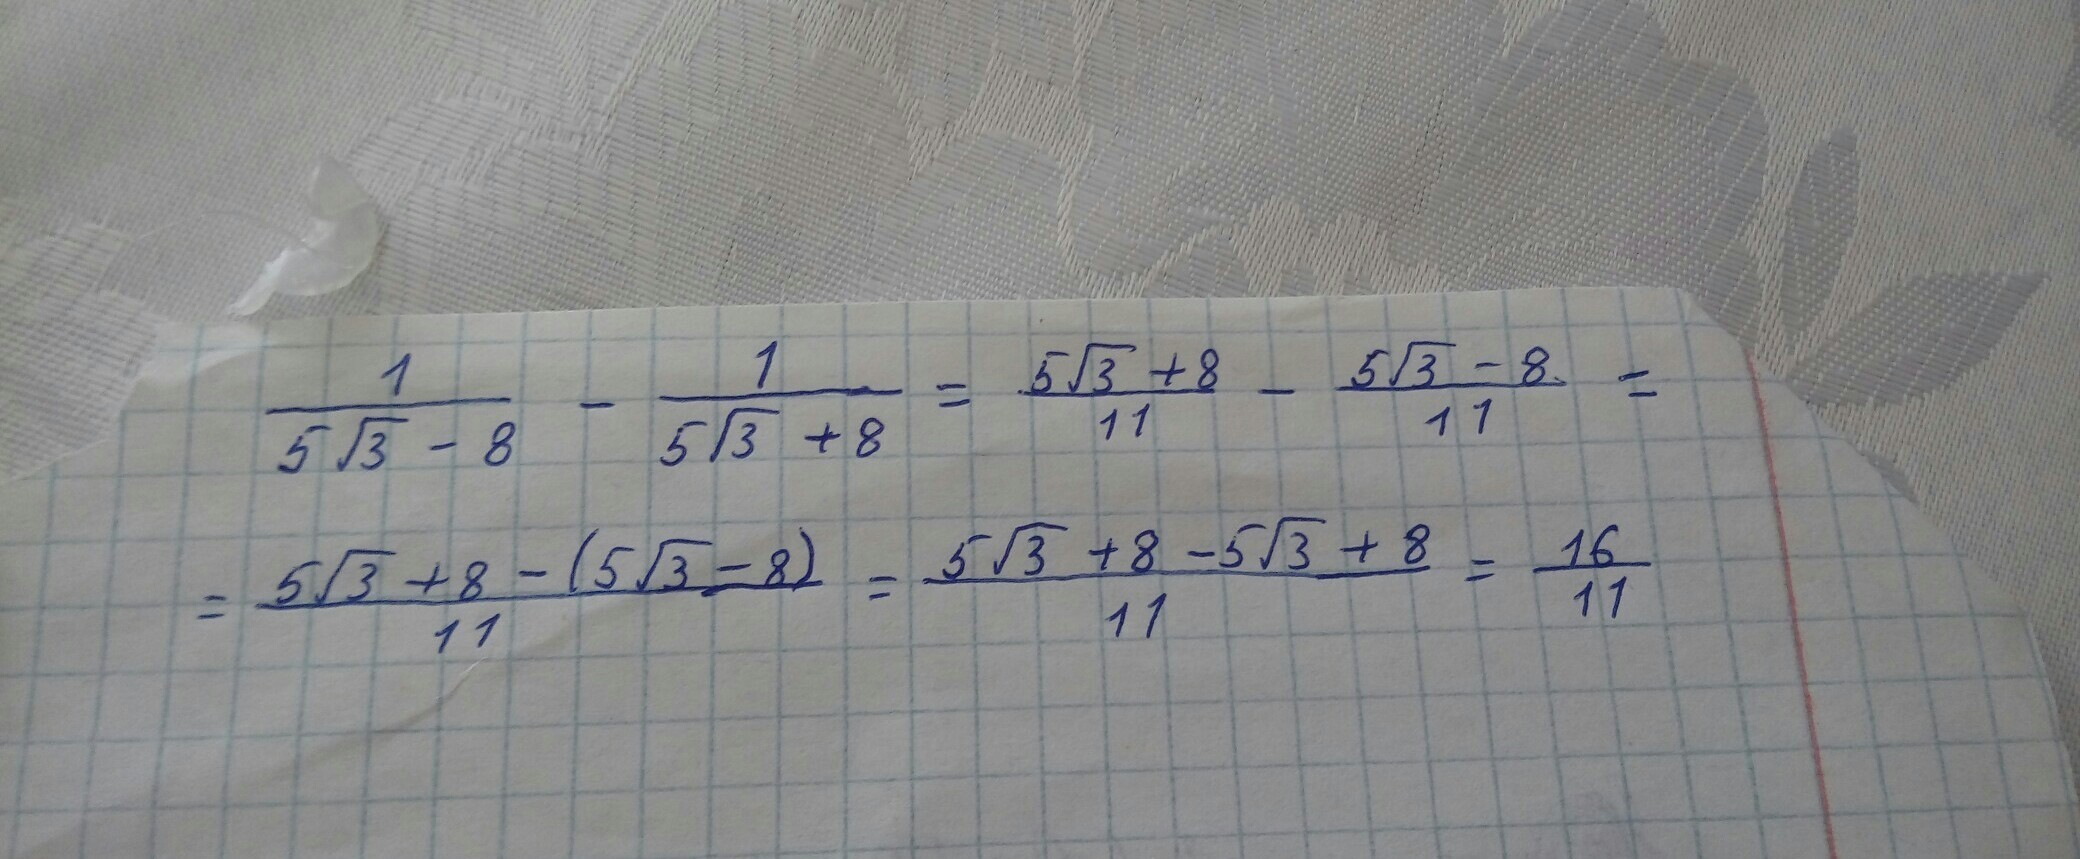 1/(5√3 - 8) - 1/(5√3 + 8) = (5√3 + 8)/11 - (5√3 - 8)/11 =
= (5√3 + 8 - (5√3 - 8))/11 = (5√3 + 8 - 5√3 + 8)/11 = 16/11